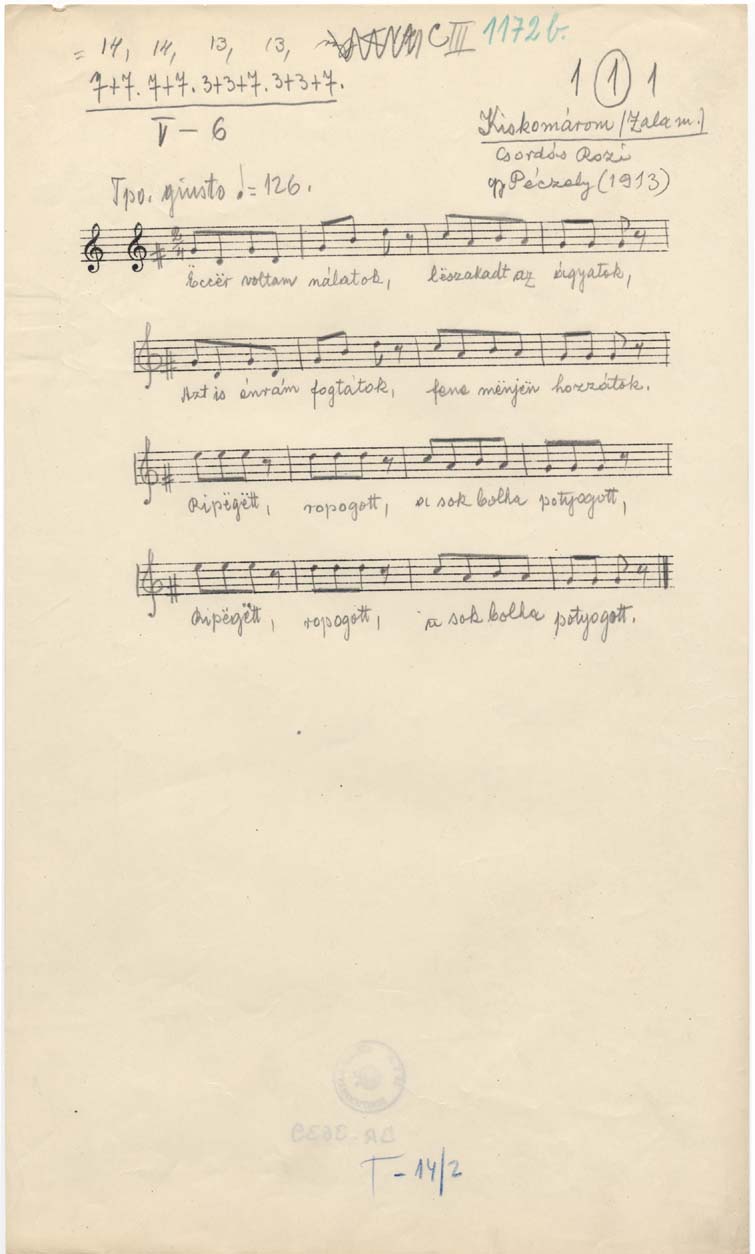 = 14, 14, 13, 13, C III 1172 b.
7+7. 7+7. 3+3+7. 3+3+7.
V – 6
1 1 1
Kiskomárom (Zala m.)
Csordás Rozi
gy Péczely (1913)
Tpo. giusto ♩= 126.
2/4
Ëccër voltam nálatok, lëszakadt az ágyatok,
Azt is énrám fogtátok, fene mënjën hozzátok.
Ripëgëtt, ropogott, a sok bolha potyogott,
Ripëgëtt, ropogott, a sok bolha potyogott.
T – 14/2